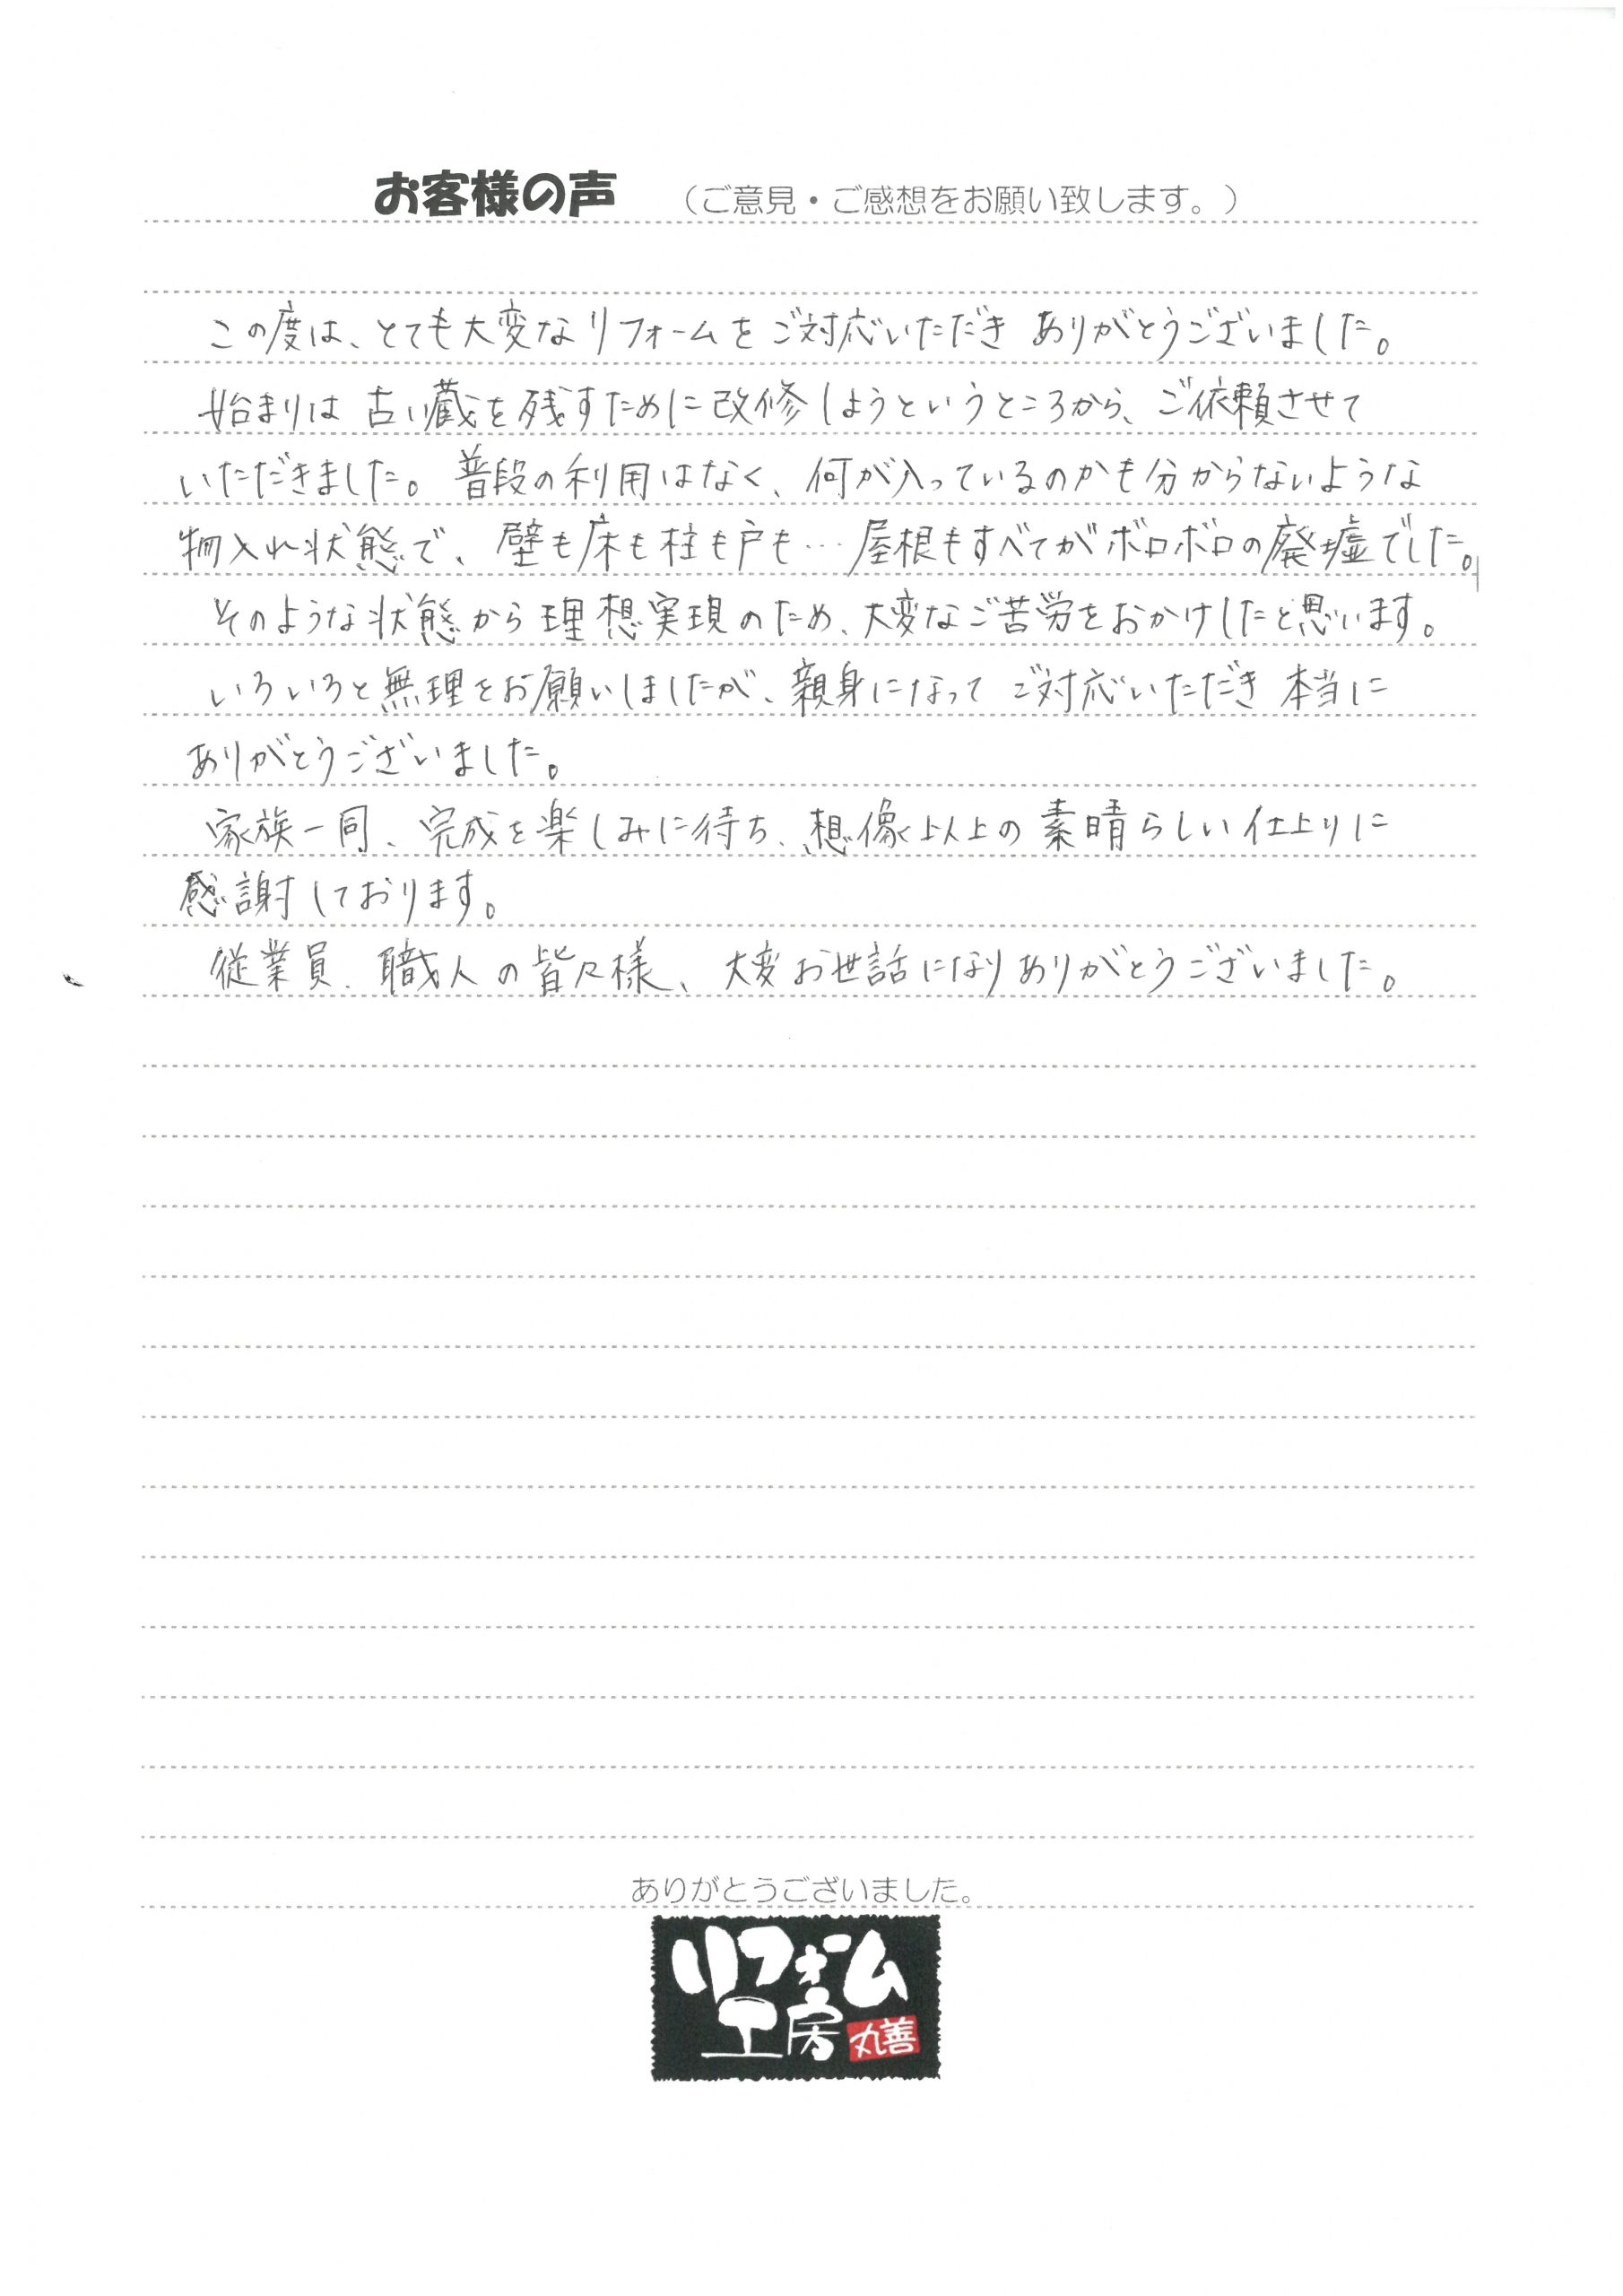 お客様の声 （ご意見・ご感想をお願い致します。）
この度は、とても大変なリフォームをご対応いただき ありがとうございました。
始まりは 古い蔵を残すために改修しようというところから、ご依頼させて
いただきました。普段の利用はなく、何が入っているのかも分からないような
物入れ状態で、壁も床も柱も戸も…屋根もすべてがボロボロの廃墟でした。
そのような状態から理想実現のため、大変なご苦労をおかけしたと思います。
いろいろと無理をお願いしましたが、親身になって ご対応いただき 本当に
ありがとうございました。
家族一同、完成を楽しみに待ち、想像以上の素晴らしい仕上りに
感謝しております。
従業員、職人の皆々様、大変お世話になりありがとうございました。
ありがとうございました。
リフォーム
工房 丸善